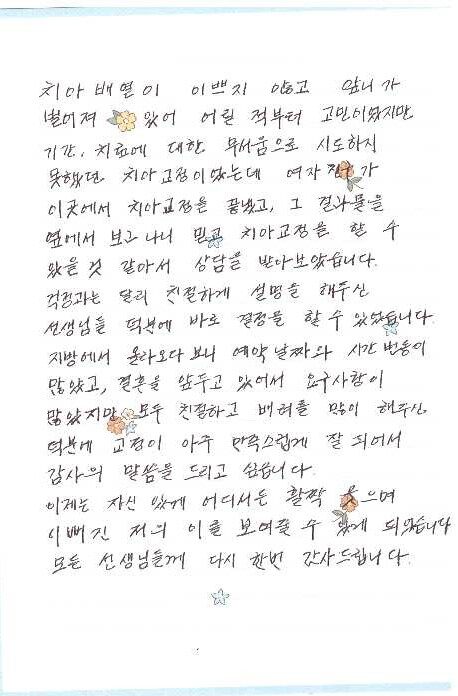 치아 배열이 이쁘지 않고 앞니가
벌어져 있어 어릴 적부터 고민이었지만
기간, 치료에 대한 무서움으로 시도하지
못했던 치아교정이었는데 여자 가
이곳에서 치아교정을 끝냈고, 그 결과물을
옆에서 보고 나니 믿고 치아교정을 할 수
있을 것 같아서 상담을 받아보았습니다.
걱정과는 달리 친절하게 설명을 해주신
선생님들 덕분에 바로 결정을 할 수 있었습니다.
지방에서 올라오다 보니 예약 날짜와 시간 변동이
많았고, 결혼을 앞두고 있어서 요구사항이
많았지만 모두 친절하고 배려를 많이 해주신
덕분에 교정이 아주 만족스럽게 잘 되어서
감사의 말씀을 드리고 싶습니다.
이제는 자신 있게 어디서든 활짝 웃으며
이뻐진 저의 이를 보여줄 수 있게 되었습니다
모든 선생님들께 다시 한번 감사드립니다.